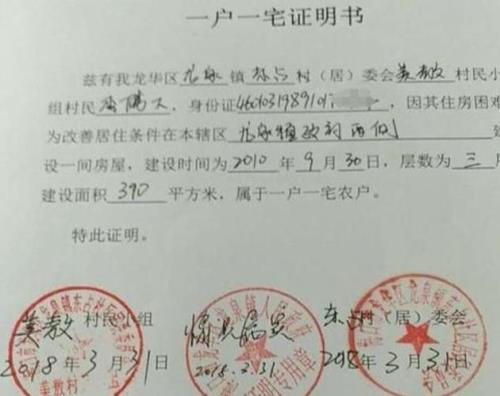 一户一宅证明书
兹有我龙华区龙泉镇东占村（居）委会美敖村民小
组村民，身份证4601031989101，因其住房困难
为改善居住条件在本辖区龙泉镇政府西侧建
设一间房屋，建设时间为2010年9月30日，层数为三
建设面积390平方米，属于一户一宅农户。
特此证明。
美敖村民小组 情况属实 东占村（居）委会
2018年3月31日 2018.3.31. 2018年3月31日
美敖村 证明专用章